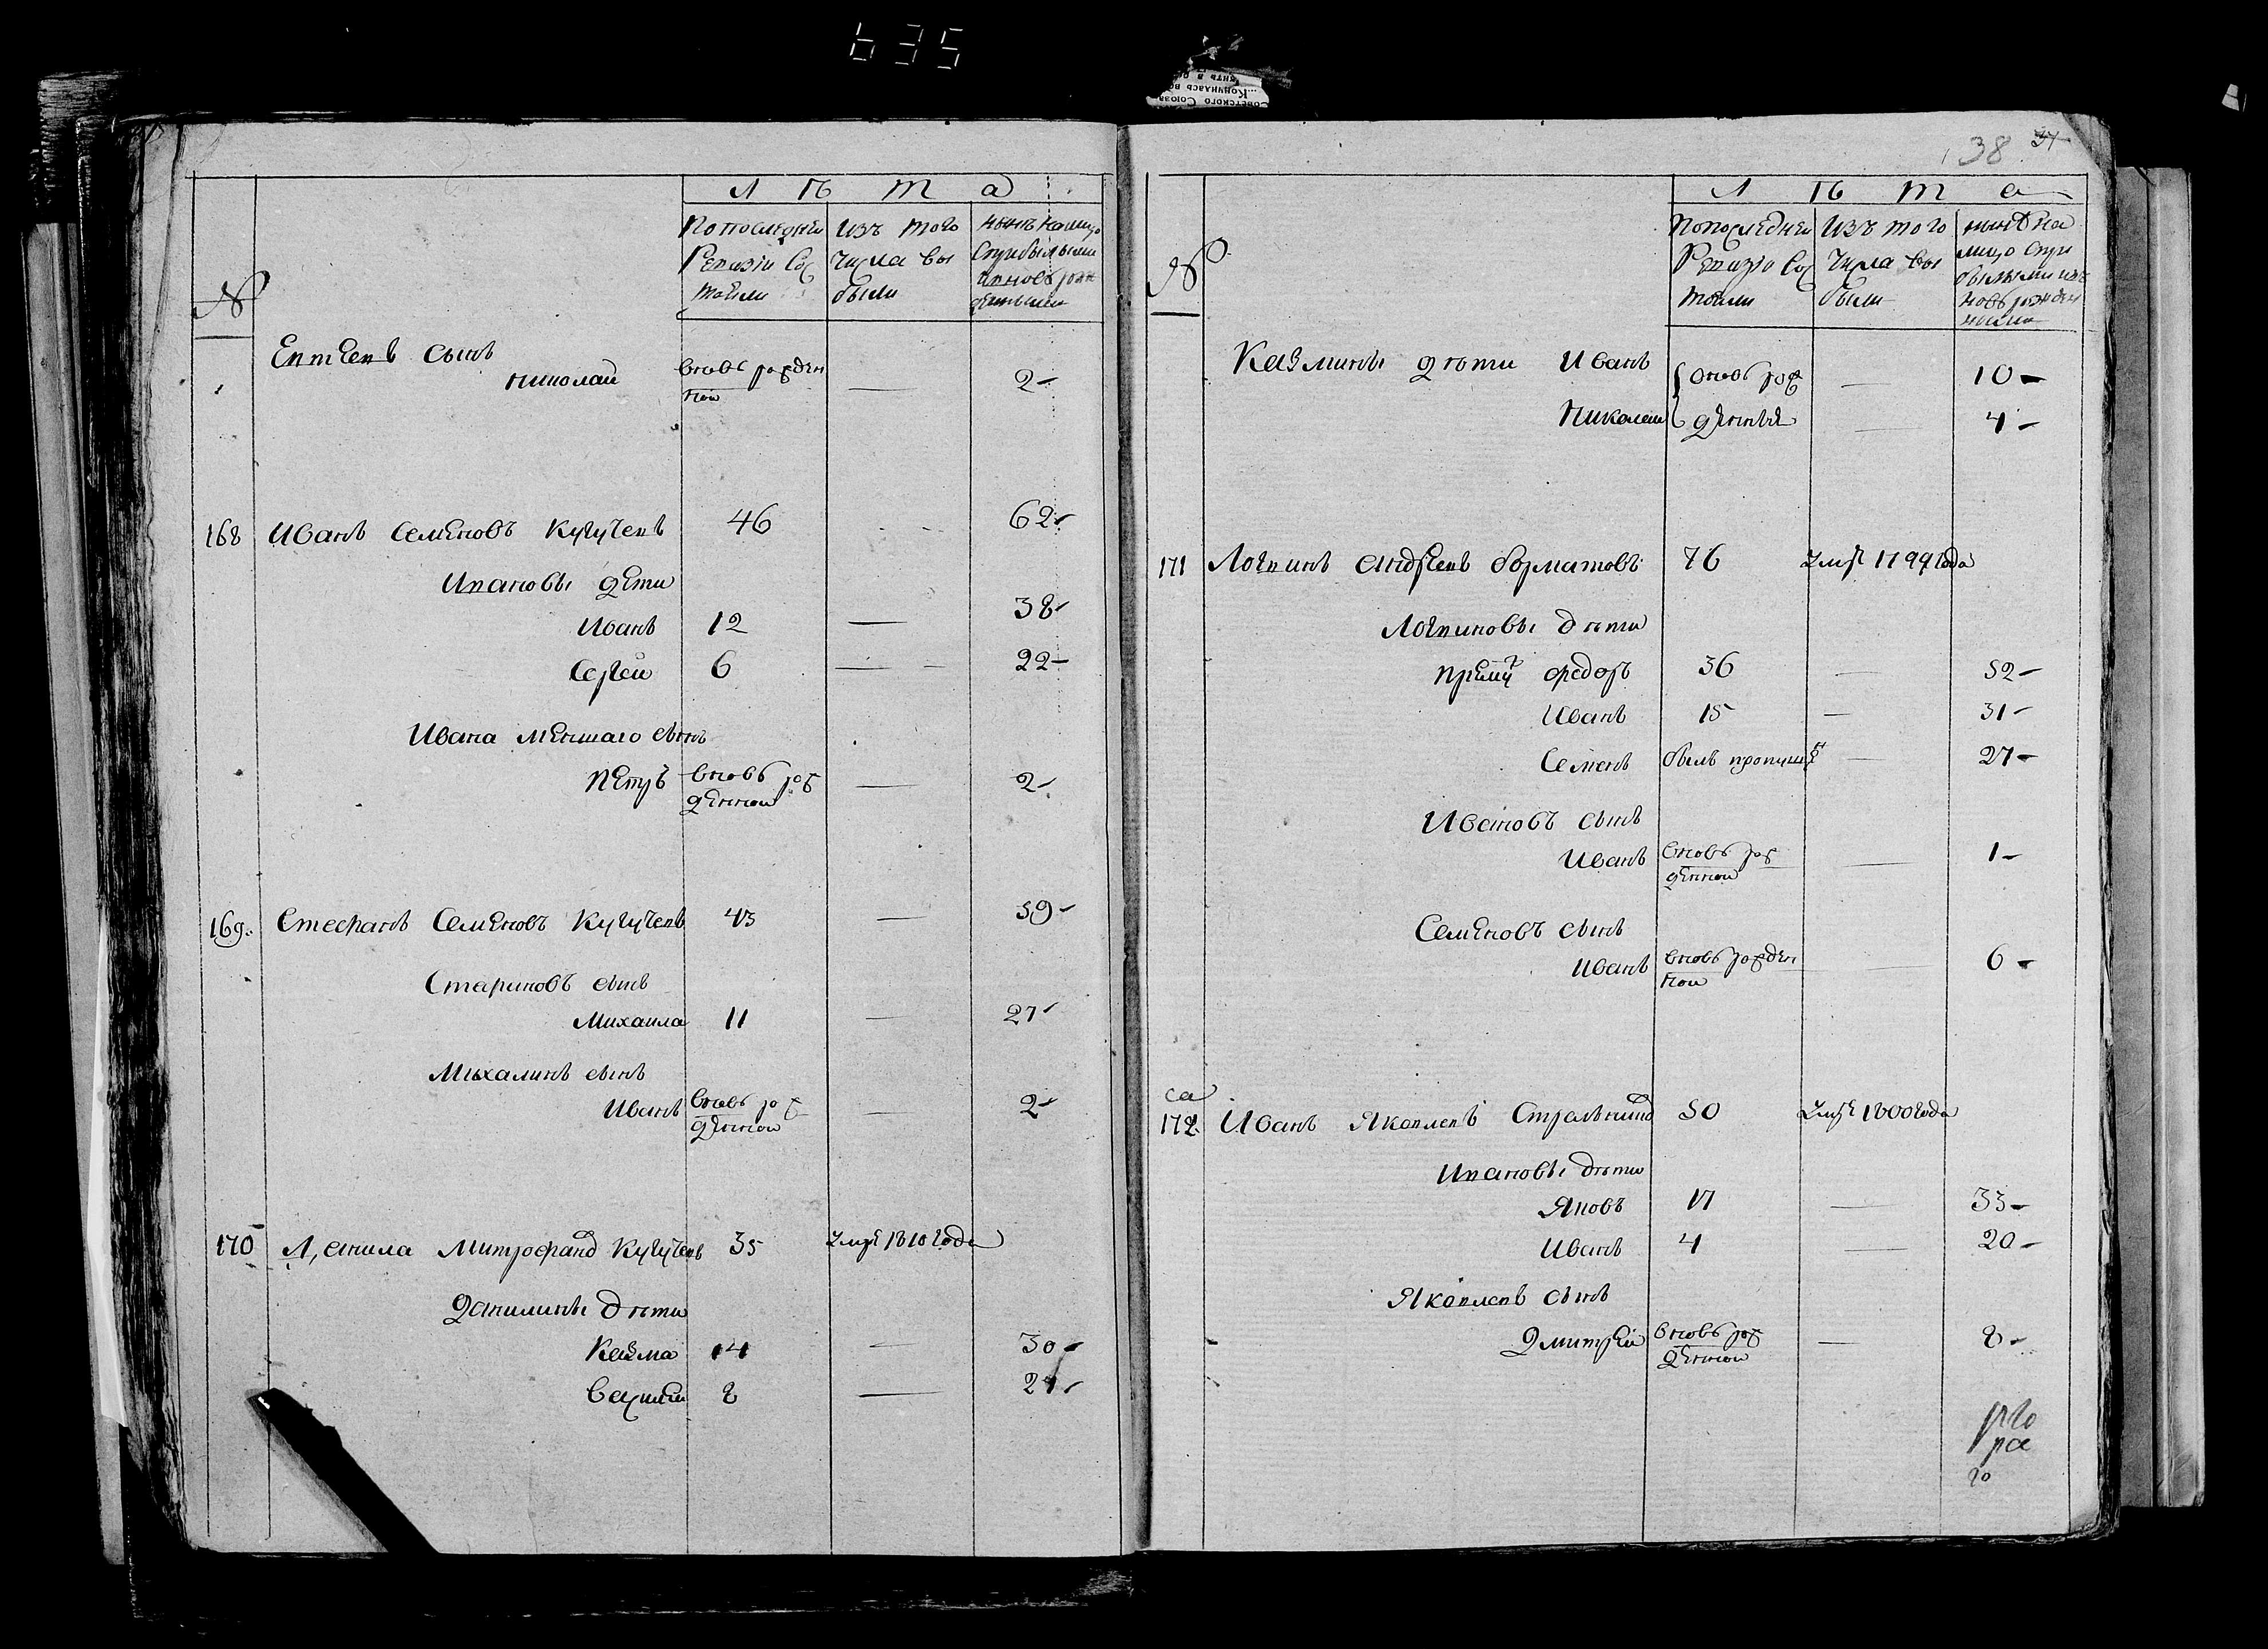 635
Советского Союза
Кончилась во
Л Ѣ Т А
№
По последней Ревизіи Состояли
Изъ того Числа Выбыли
Нынѣ на лицо Съ прибылыми и вновь рожденными
Евтеевъ сынъ
Николай вновь рожденной — 2
168 Иванъ Семеновъ Кугучевъ 46 62
Ивановы дети
Иванъ 12 — 38
Сергеи 6 — 22
Ивана меншаго сынъ
Петръ вновь рожденнои — 2
169. Стефанъ Семеновъ Кугучевъ 43 — 59
Стефановъ сынъ
Михаила 11 — 27
Михалинъ сынъ
Иванъ вновь рожденнои — 2
170 Данила Митрофановъ Кугучевъ 35 Умре 1810 года
Данилины дѣти
Казма 14 — 30
Василеи 8 — 24
38
Л Ѣ Т А
№
По последней Ревизіи Состояли
Изъ того Числа Выбыли
Нынѣ на лицо Съ прибылыми и вновь рожденными
Казмины дѣти Иванъ вновь рож — 10
Николаи денныя — 4
171 Логвинъ Андреевъ Борматовъ 76 Умре 1799 года
Логвиновы дѣти
Федоръ 36 — 52
Иванъ 15 — 31
Семенъ былъ пропущен — 27
Ивановъ сынъ
Иванъ вновь рожденнои — 1
Семеновъ сынъ
Иванъ вновь рожденнои — 6
172. Иванъ Яковлевъ Стрелъниковъ 50 Умре 1800 года
Ивановы дѣти
Яковъ 17 — 33
Иванъ 4 — 20
Яковлевъ сынъ
Дмитреи вновь рожденнои — 8